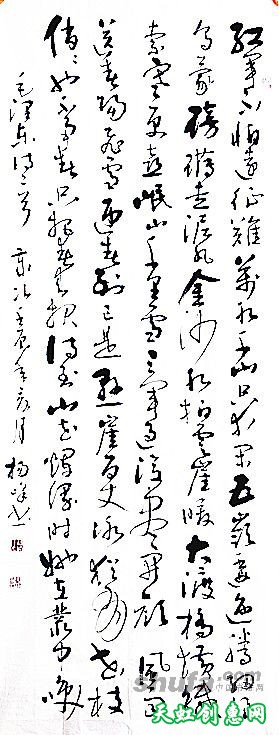 红军不怕遠征难萬水千山只等闲五嶺逶迤腾细浪
乌蒙磅礴走泥丸金沙水拍雲崖暖大渡橋横铁
索寒更喜岷山千里雪三军过后尽开颜 風雨
送春归飛雪迎春到已是悬崖百丈冰犹有花枝
俏俏也不争春只把春来报待到山花烂漫时她在叢中笑
毛泽东诗二首 歲次壬辰年
shufa.com
天虹创意网